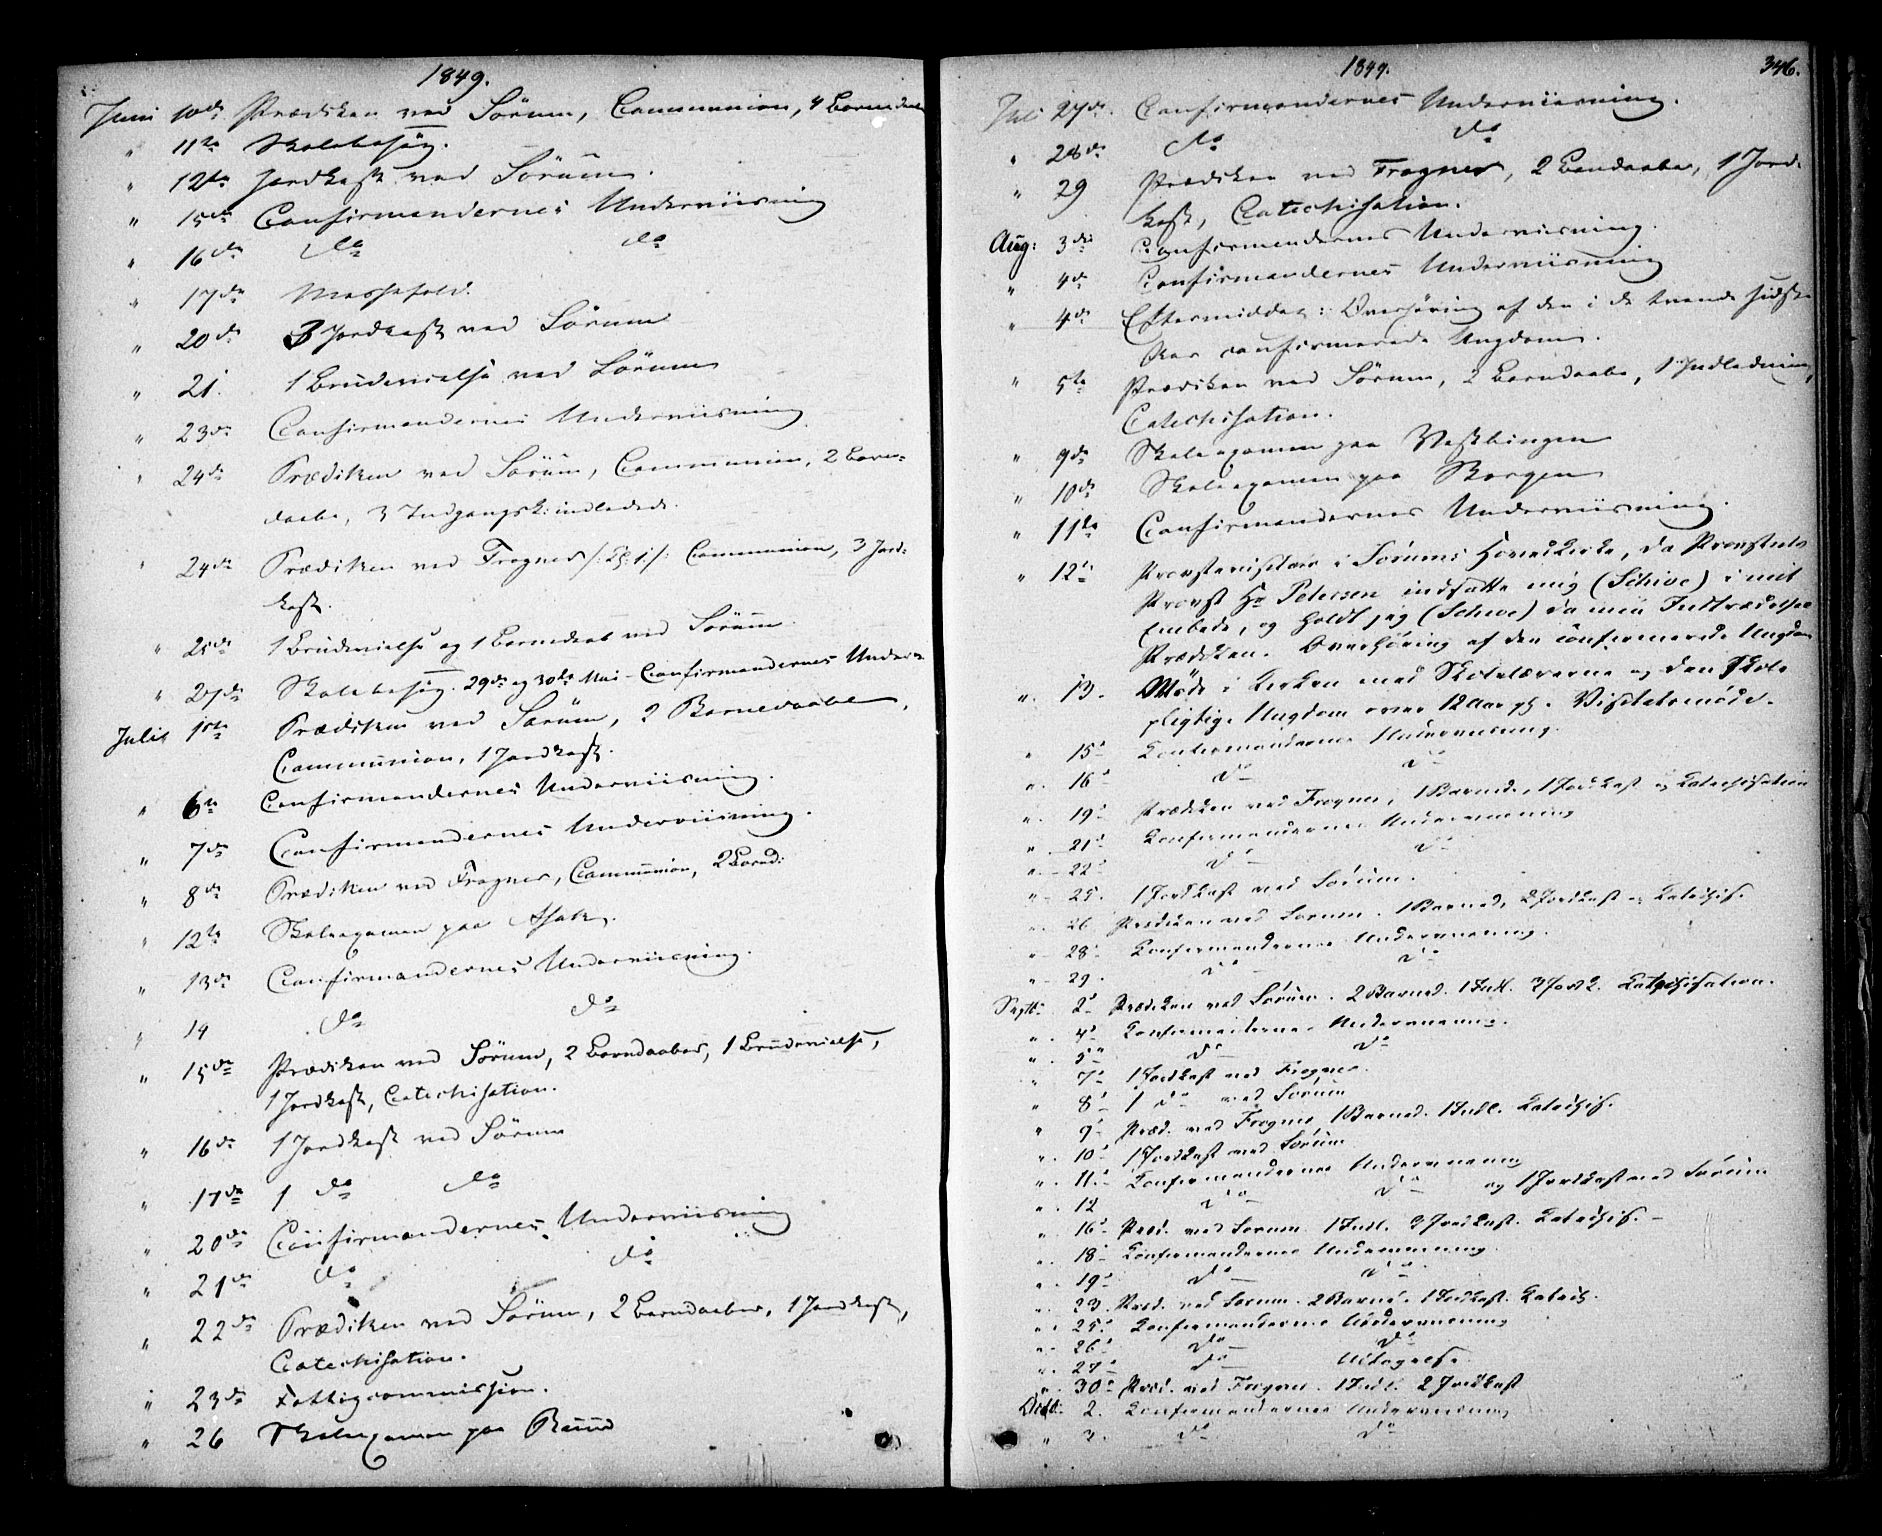 1849.
Juni 10de Prædiken ved Sörum, Communion, 4 Barnedaab
" 11te Skolebesög.
" 12te Jordkast ved Sörum.
" 15de Confirmandernes Underviisning
" 16de do do
" 17de Messefald.
" 20de 3 Jordkast ved Sörum
" 21. 1 Brudevielse ved Sörum
" 23de Confirmandernes Underviisning
" 24de Prædiken ved Sörum, Communion, 2 Barne-
daabe, 3 Indgangsk: indledede.
" 24de Prædiken ved Frogner, Communion, 3 Jord-
kast.
" 25de 1 Brudevielse og 1 Barnedaab ved Sörum.
" 27de Skolebesög. 29de og 30te Mai - Confirmandernes Underv.
Juli 1ste Prædiken ved Sörum, 2 Barnedaabe,
Communion, 1 Jordkast.
" 6te Confirmandernes Underviisning.
" 7de Confirmandernes Underviisning.
" 8de Prædiken ved Frogner, Communion, 2 Barnd:
" 12te Skoleexamen paa Asak.
" 13de Confirmandernes Underviisning.
" 14 do do
" 15de Prædiken ved Sörum, 2 Barndaaber, 1 Brudevielse,
1 Jordkast, Catechisation.
" 16de 1 Jordkast ved Sörum
" 17de 1 do do
" 20de Confirmandernes Underviisning
" 21de do do
" 22de Prædiken ved Sörum, 2 Barndaaber, 1 Jordkast,
Catechisation.
" 23de Fattigcommission.
" 26 Skoleexamen paa
1849. 346.
Juli 27de. Confirmandernes Underviisning.
" 28de do do
" 29 Prædiken ved Frogner, 2 Barndaaber, 1 Jord-
kast, Catechisation.
Aug: 3die Confirmandernes Underviisning.
" 4de Confirmandernes Underviisning
" 4de Eftermiddag: Overhöring af den i de tvende sidste
Aar confirmerede Ungdom.
" 5te Prædiken ved Sörum, 2 Barndaabe, 1 Indledning,
Catechisation.
" 9de Skoleexamen paa
" 10de Skoleexamen paa Borgen
" 11te Confirmandernes Underviisning.
" 12te Provstevisitats i Sörums Hovedkirke, da Provstiets
Provst Hr Petersen indsatte mig (Schive) i mit
Embede, og holdt jeg (Schive) da min Indtrædelses
Prædiken. Overhöring af den confirmerede Ungdom
" 13. Möde i Kirken med Skolelærerne og den skole
pligtige Ungdom over 12 Aar. Visitatsmöde.
" 15 Konfirmandernes Underviisning.
" 16 do do
" 19 Prædiken ved Frogner, 1 Barned., 1 Jordkast og Katechisation
" 21 Konfirmandernes Underviisning
" 22 do do
" 25. 1 Jordkast ved Sörum.
" 26 Prædiken ved Sörum. 1 Barned, 2 Jordkast og Katechis.
" 28 Konfirmandernes Underviisning.
" 29. do do
Septb: 2 Prædiken ved Sörum. 2 Barned. 1 Indl. 3 Jordk. Katechisation.
" 4 Konfirmandernes Underviisning.
" 5 do do
" 7 1 Jordkast ved Frogner.
" 8 1 do ved Sörum
" 9 Præd. ved Frogner 1 Barned. 1 Indl. Katechis.
" 10 1 Jordkast ved Sörum
" 11 Konfirmandernes Underviisning
" 12 do do og 1 Jordkast ved Sörum
" 16 Præd. ved Sörum. 1 Indl. 3 Jordkast. Katechis.
" 18 Konfirmandernes Underviisning.
" 19 do do
" 23. Præd. ved Sörum. 2 Barned. 1 Jordkast. Katech.
" 25 Konfirmandernes Underviisning
" 26 do do
" 27 do
" 30 Præd. ved Frogner. 1 Indl. 2 Jordkast
Octb: 2. Konfirmandernes Underviisning
" 3. do do